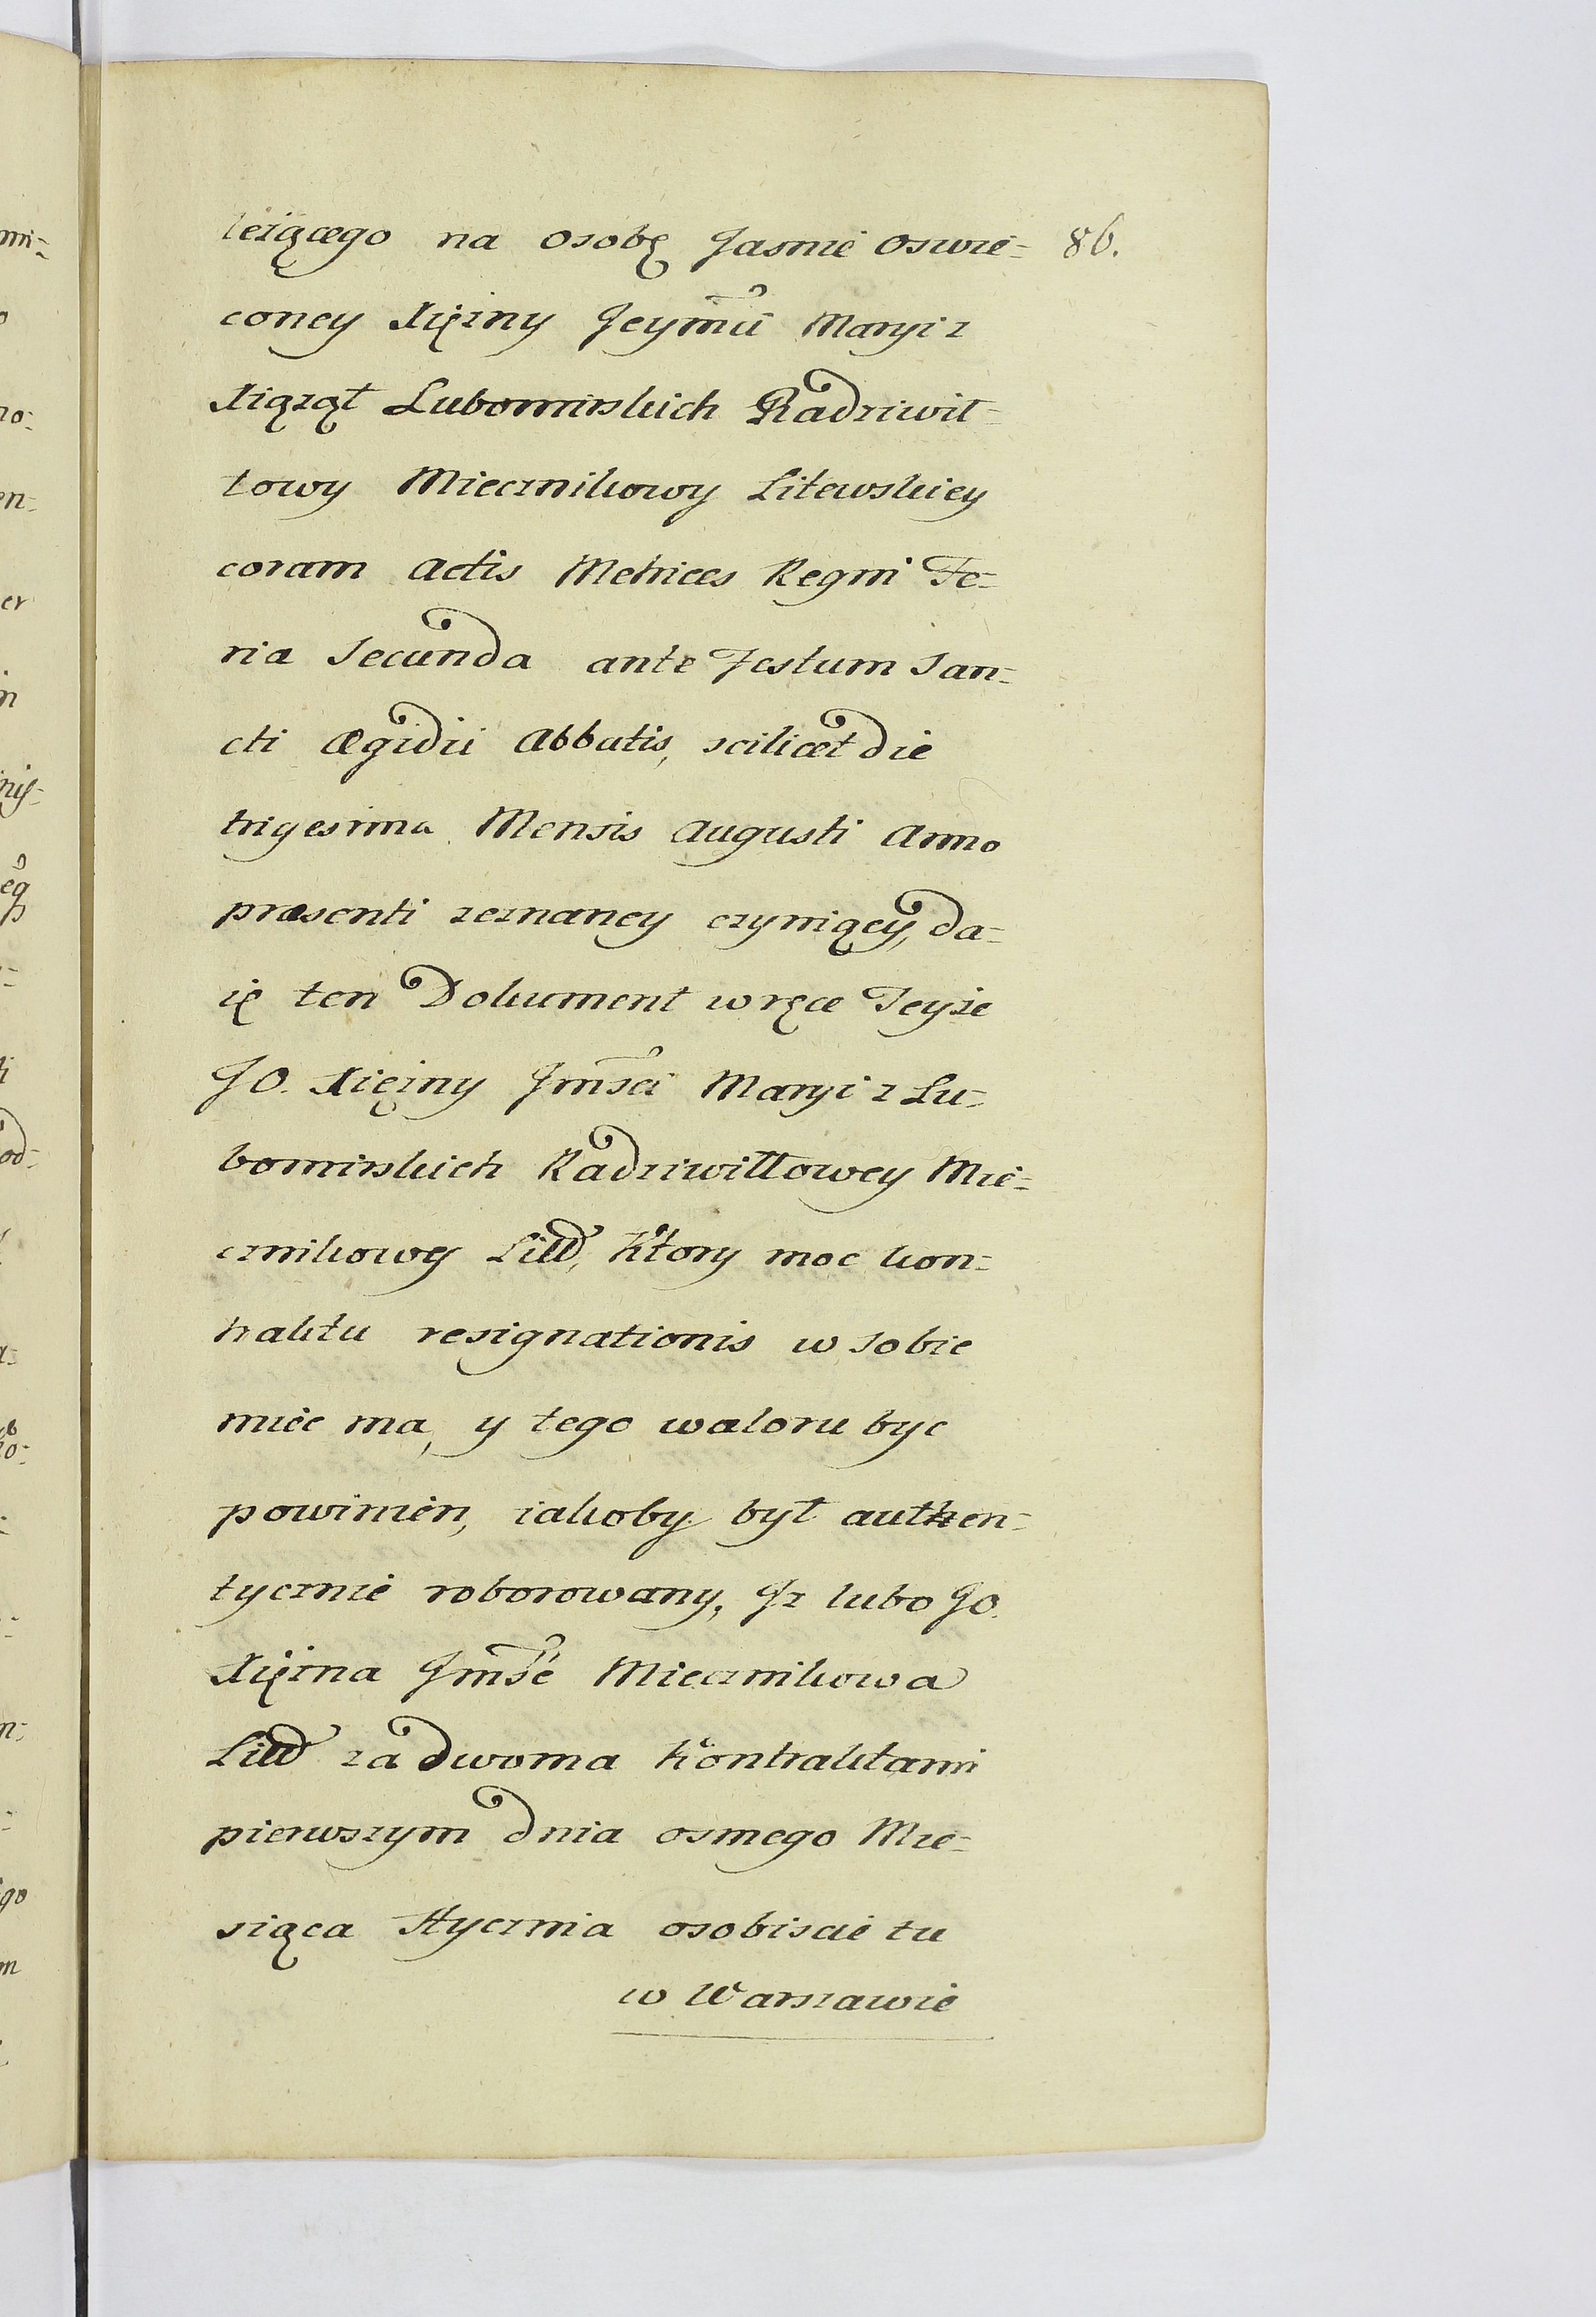 leżącego na osobę Jasnie Oswie= 86.
coney Xiężny Jeymu Maryi z
Xiążąt Lubomirskich Radziwił=
łowy Miecznikowy Litewskiey
coram Actis Metrices Regni Fe=
ria Secunda ante Festum San=
cti Ægidii Abbatis, scilicet die
trigesima Mensis Augusti Anno
præsenti zeznaney czyniącey, da=
ię ten Dokument w ręce Teyże
JO. Xiężny Jmści Maryi z Lu=
bomirskich Radziwiłłowey Mie=
cznikowey Litt, Ktory moc kon=
traktu resignationis w sobie
miec ma, y tego waloru byc
powinien, iakoby był authen=
tycznie roborowany, Jż lubo JO.
Xiężna Jmść Miecznikowa
Litt za dwoma Kontraktami
pierwszym dnia osmego Mie=
siąca Stycznia osobiscie tu
w Warszawie